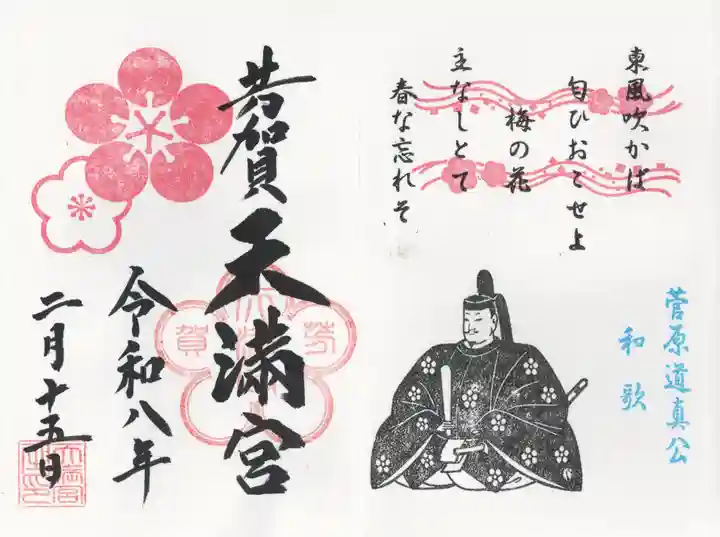 東風吹かば
匂ひおこせよ
梅の花
主なしとて
春な忘れそ
菅原道真公
和歌
芳賀天満宮
令和八年
二月十五日
芳
賀